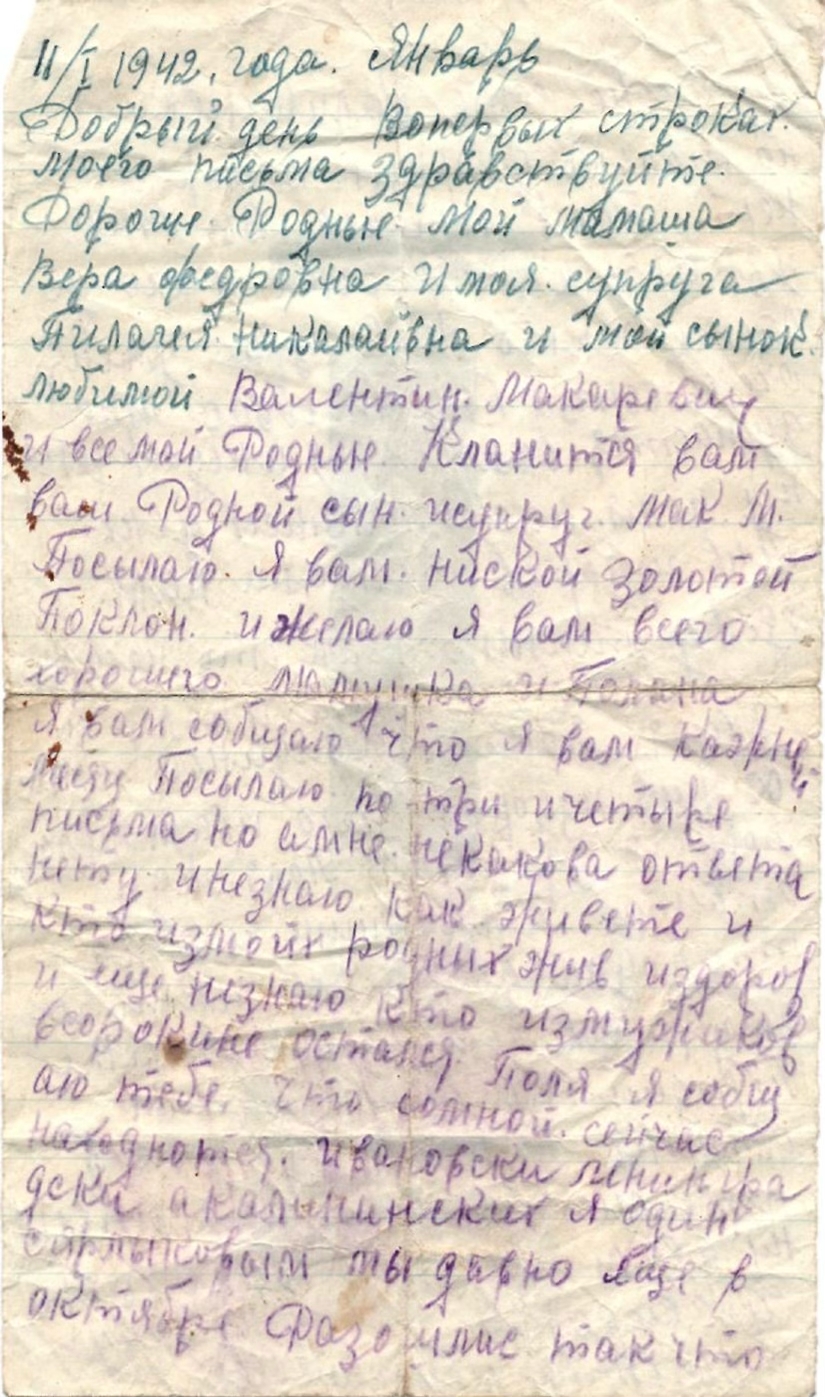 11/I 1942. года. Январь
Добрый день Вопервых строках.
моего письма здравствуйте.
Дорогие Родные мой мамаша
Вера федровна И моя. супруга
Пилагея Никалаивна и мой сынок.
любимой Валентин. Макаревич
и все мой Родные. Кланится вам
ваш Родной сын. исупруг. Мак. М.
Посылаю. Я вам. ниской золотой
Поклон. и желаю я вам всего
хорошего мамашка и
Я вам собщаю что я вам
месяц Посылаю по три ичетыре
письма но амне некакова ответа
нету инезнаю как живете и
кто измоих родных жив издоров
и еще незнаю кто измужиков
всорокине остался Поля я собщ
аю тебе, что сомной. сейчас
находятся. ивановски ленингра
дски акалининских я один
мы давно еще в
октябре Разошлис так что